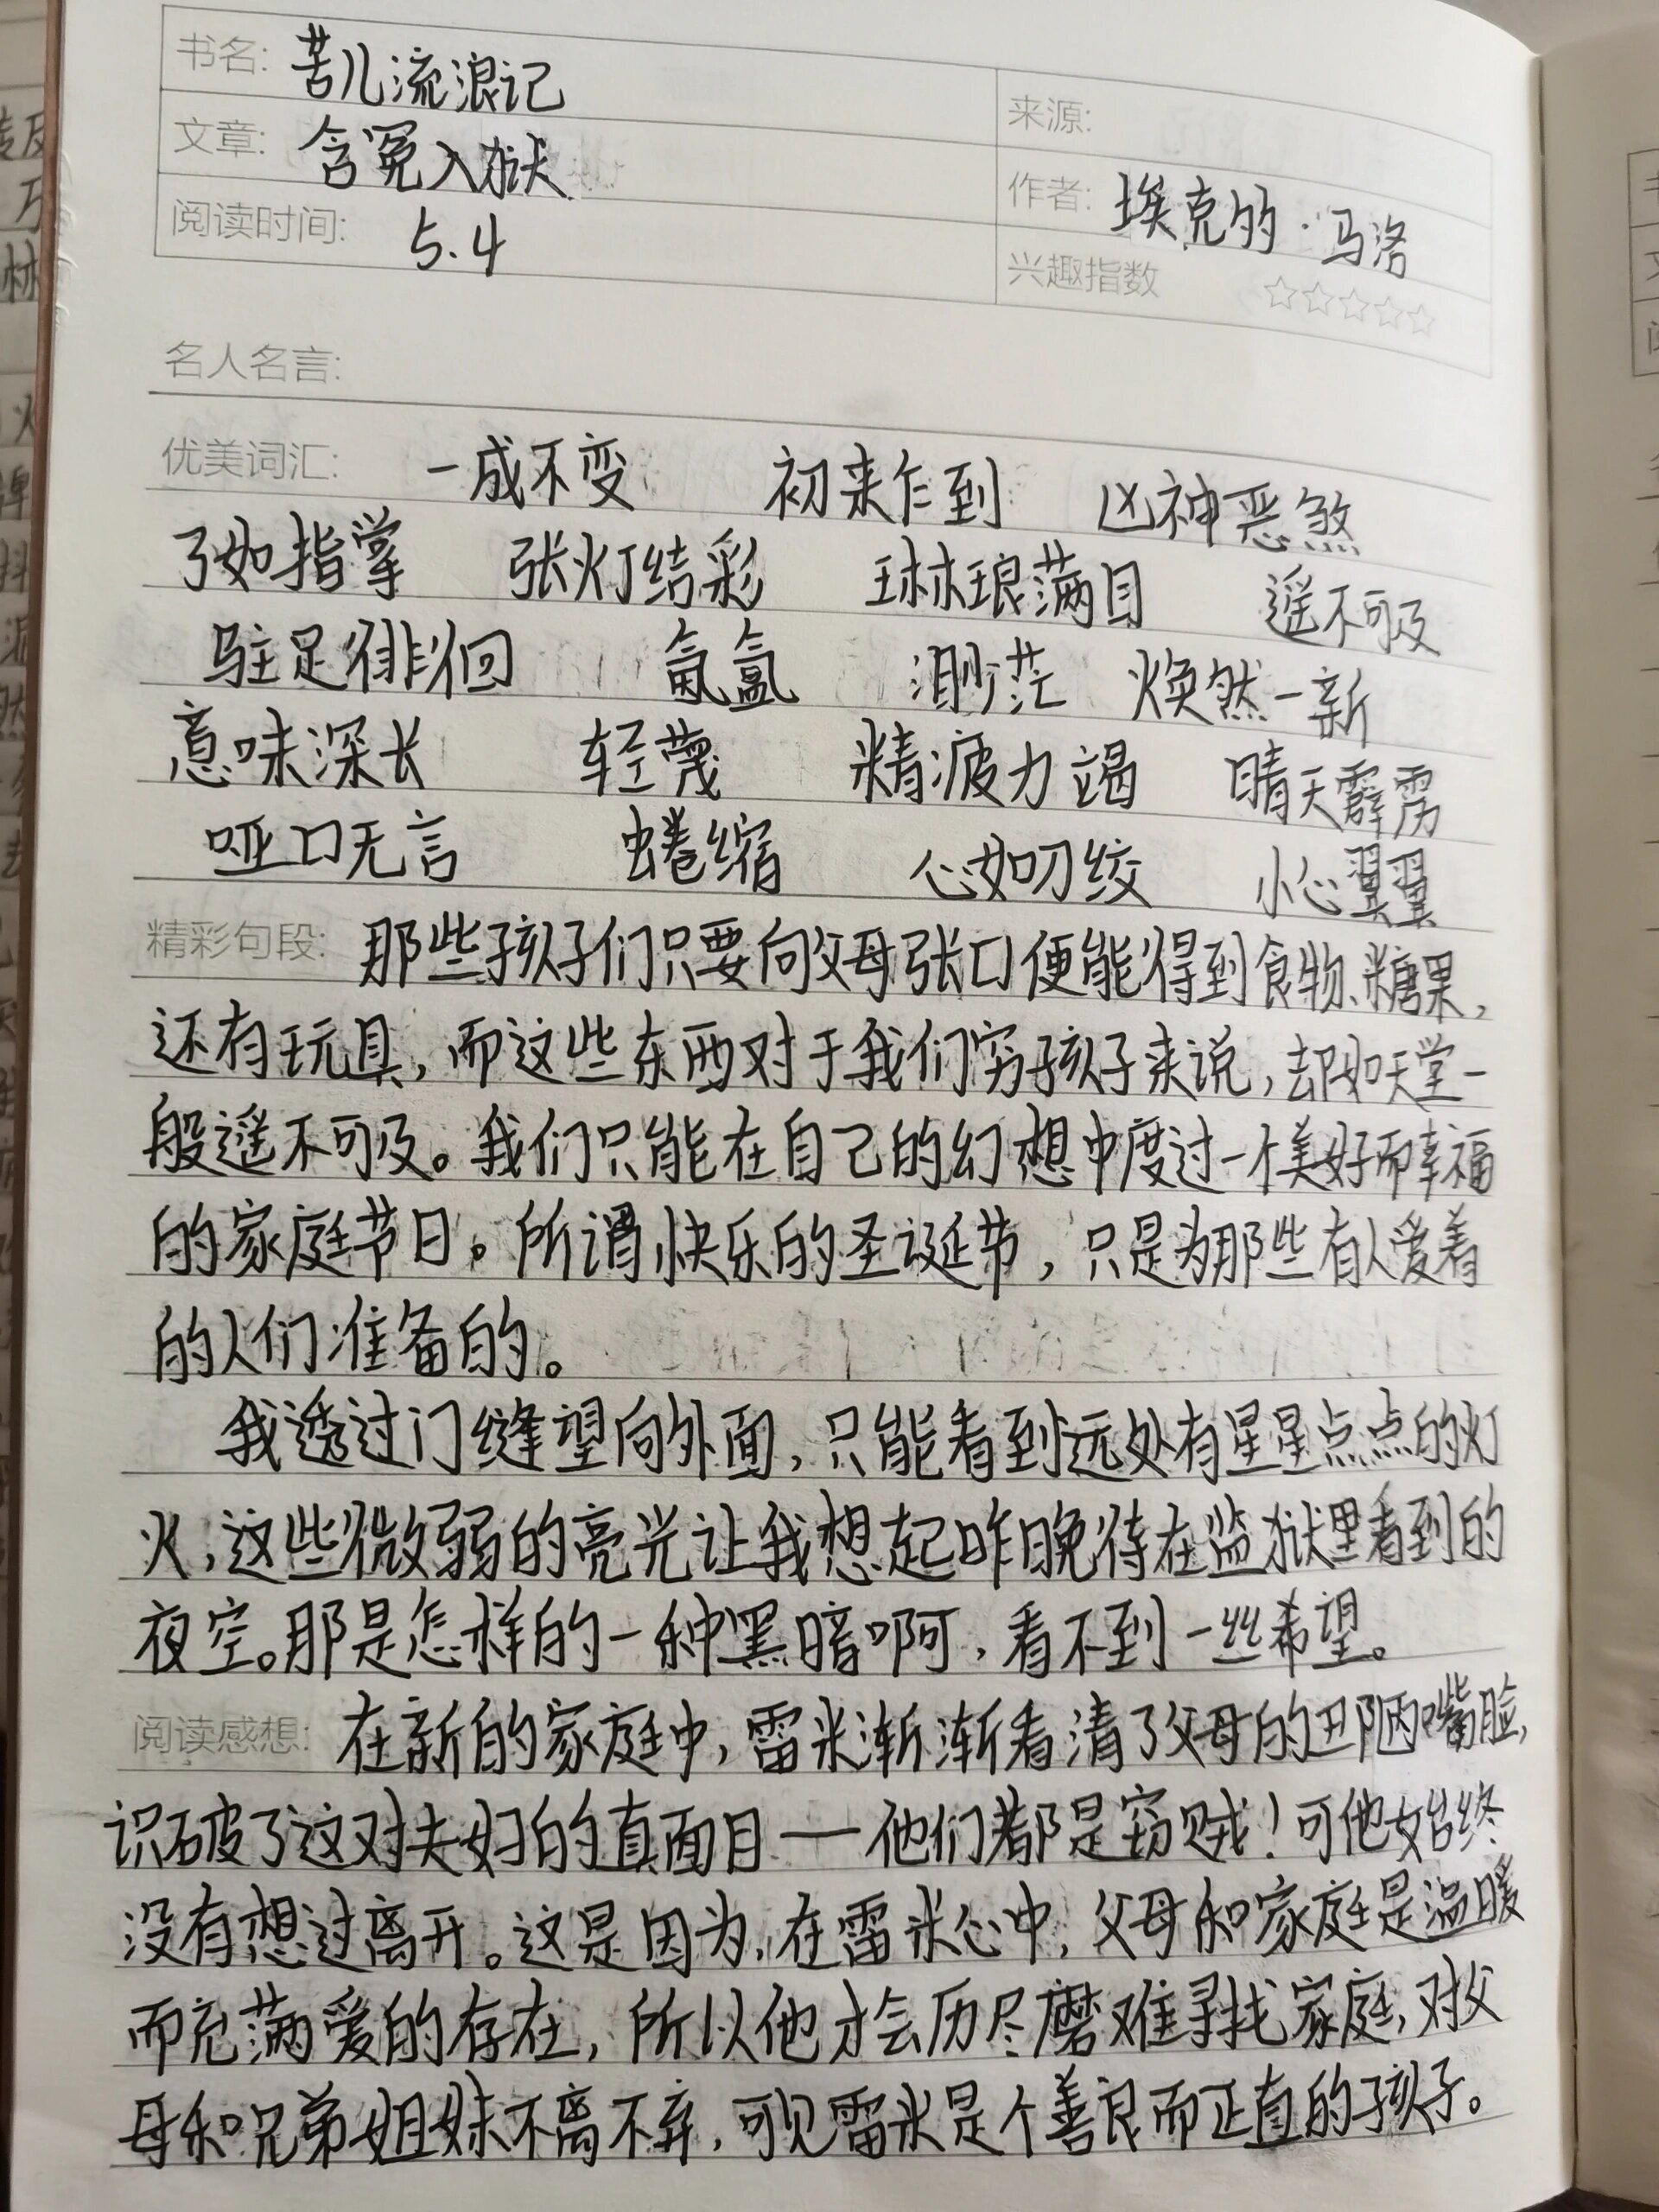 书名: 苦儿流浪记
来源:
文章: 含冤入狱
作者: 埃克的·马洛
阅读时间: 5.4
兴趣指数 ☆☆☆☆☆
名人名言:
优美词汇: 一成不变 初来乍到 凶神恶煞
了如指掌 张灯结彩 琳琅满目 遥不可及
驻足徘徊 氤氲 渺茫 焕然一新
意味深长 轻蔑 精疲力竭 晴天霹雳
哑口无言 蜷缩 心如刀绞 小心翼翼
精彩句段: 那些孩子们只要向父母张口便能得到食物、糖果,
还有玩具,而这些东西对于我们穷孩子来说,却如天堂一
般遥不可及。我们只能在自己的幻想中度过一个美好而幸福
的家庭节日。所谓快乐的圣诞节,只是为那些有人爱着
的人们准备的。
我透过门缝望向外面,只能看到远处有星星点点的灯
火,这些微弱的亮光让我想起昨晚待在监狱里看到的
夜空。那是怎样的一种黑暗啊,看不到一丝希望。
阅读感想: 在新的家庭中,雷米渐渐看清了父母的丑陋嘴脸,
识破了这对夫妇的真面目——他们都是窃贼!可他始终
没有想过离开。这是因为,在雷米心中,父母和家庭是温暖
而充满爱的存在,所以他才会历尽磨难寻找家庭,对父
母和兄弟姐妹不离不弃,可见雷米是个善良而正直的孩子。